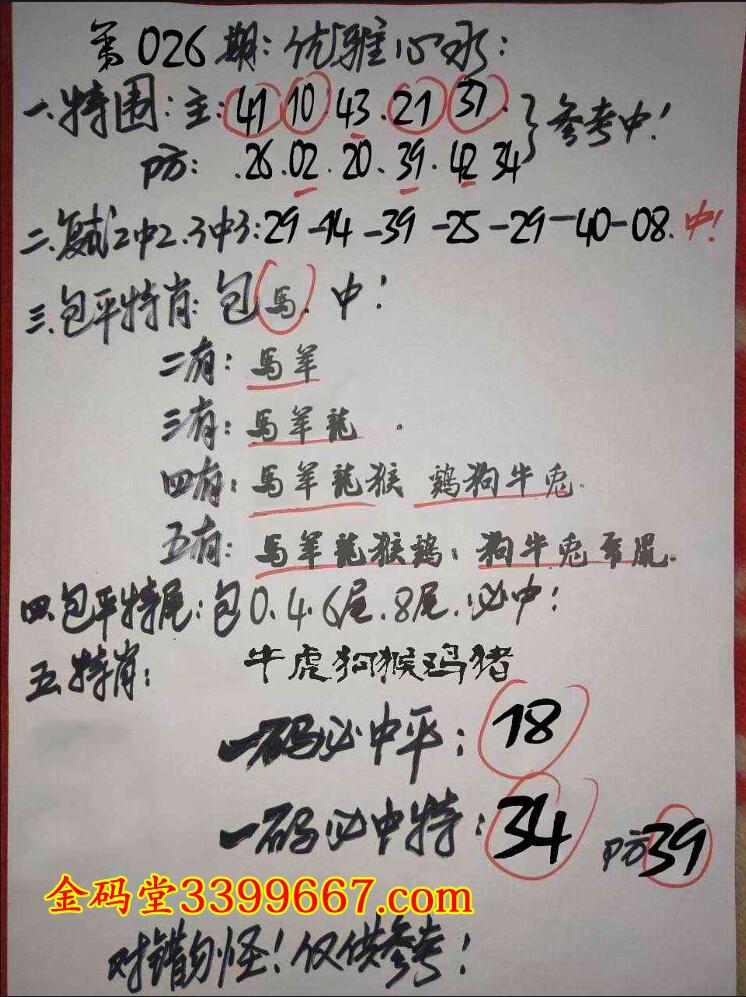 第026期:优雅心水:
一.特围:主:41 10 43.21 37.
防:.26.02.20.39.42 34
参考中!
二.复式2中2.3中3:29-14-39-25-29-40-08.中!
三.包平特肖:包馬.中!
二有:馬羊
三有:馬羊龍.
四有:馬羊龍猴 鷄狗牛兎.
五有:馬羊龍猴鷄、狗牛兎 鼠.
四.包平特尾:包0.4.6尾.8尾.必中!
五.特肖: 牛虎狗猴鸡猪
一码必中平:18
一码必中特:34 防39
金码堂3399667.com
对错勿怪!仅供参考!